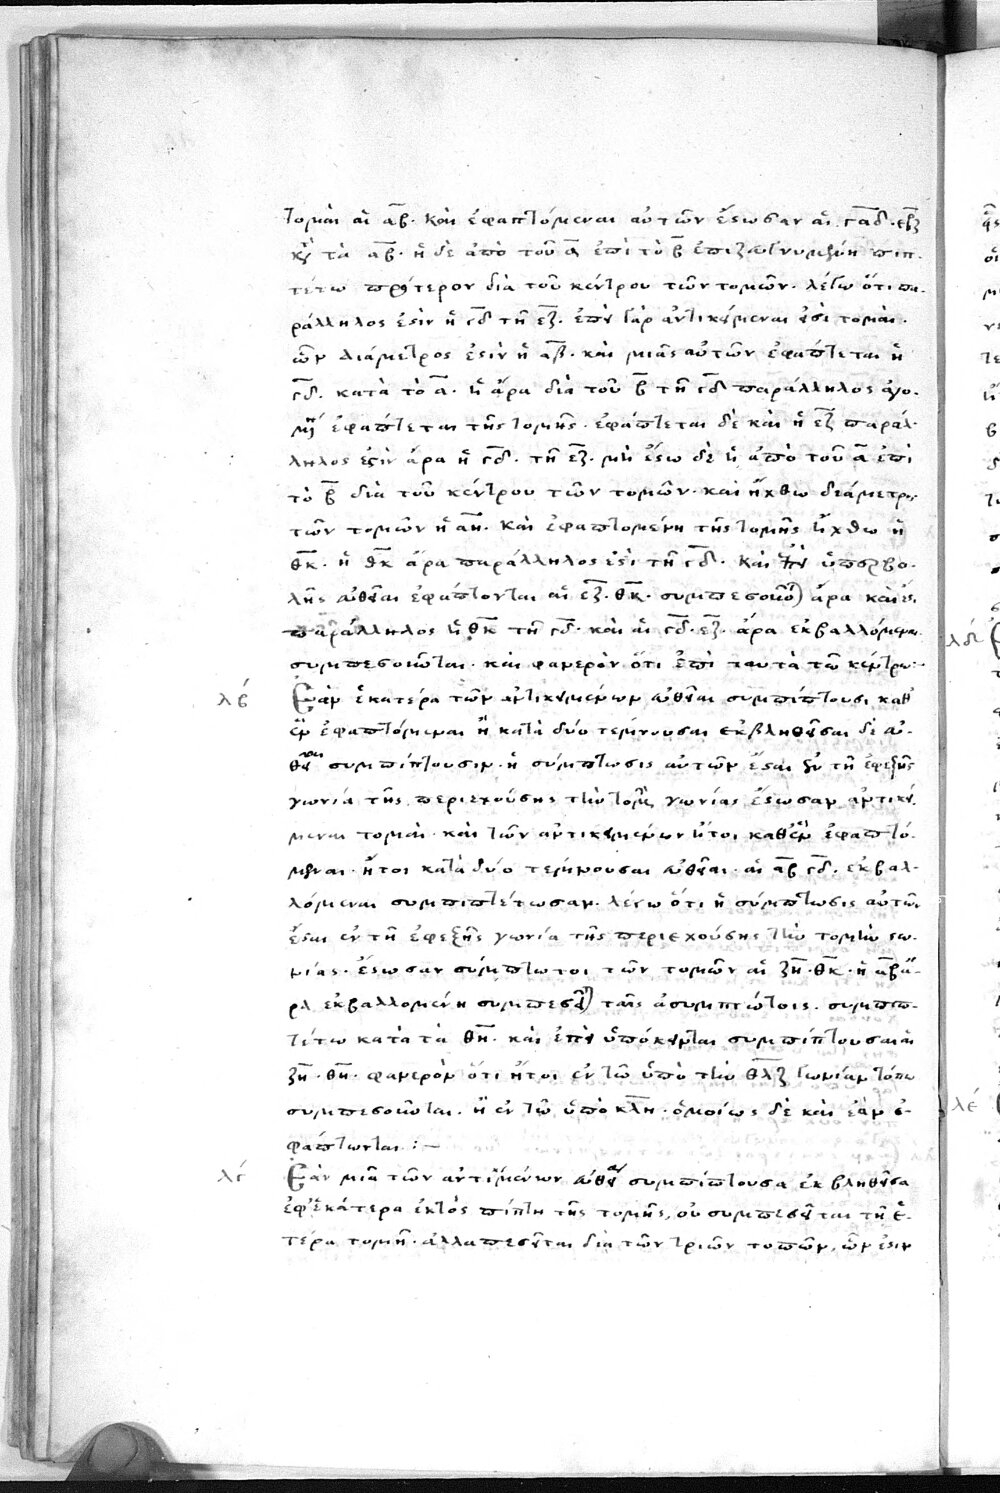 τομαὶ αἱ α̅β̅· καὶ ἐφαπτόμεναι αὐτῶν ἔστωσαν αἱ γ̅α̅δ̅· ε̅β̅ζ̅
κατὰ τὰ α̅β̅· ἡ δὲ ἀπὸ τοῦ α̅ ἐπὶ τὸ β̅ ἐπιζευγνυμένη πιπ-
τέτω πρότερον διὰ τοῦ κέντρου τῶν τομῶν· λέγω ὅτι πα-
ράλληλος ἐστὶν ἡ γ̅δ̅ τῆ ε̅ζ̅· ἐπεὶ γὰρ ἀντικείμεναι εἰσὶ τομαὶ·
ὧν διάμετρος ἐστὶν ἡ α̅β̅· καὶ μιᾶς αὐτῶν ἐφάπτεται ἡ
γ̅δ̅· κατὰ τὸ α̅· ἡ ἄρα διὰ τοῦ β̅ τῆ γ̅δ̅ παράλληλος ἀγο-
μένη ἐφάπτεται τῆς τομῆς· ἐφάπτεται δὲ καὶ ἡ ε̅ζ̅ παράλ-
ληλος ἐστὶν ἄρα ἡ γ̅δ̅· τῆ ε̅ζ̅· μὴ ἔστω δὲ ἡ ἀπὸ τοῦ α̅ ἐπὶ
τὸ β̅ διὰ τοῦ κέντρου τῶν τομῶν· καὶ ἤχθω διάμετρος
τῶν τομῶν ἡ α̅η̅· καὶ ἐφαπτομένη τῆς τομῆς ἤχθω ἡ
θ̅κ̅· ἡ θ̅κ̅ ἄρα παράλληλος ἐστὶ τῆ γ̅δ̅· καὶ ἐπεὶ ὑπερβο-
λῆς εὐθεῖαι ἐφάπτονται αἱ ε̅ζ̅· θ̅κ̅· συμπεσοῦνται ἄρα καὶ ἔστι
παράλληλος ἡ θ̅κ̅ τῆ γ̅δ̅· καὶ αἱ γ̅δ̅· ε̅ζ̅· ἄρα ἐκβαλλόμεναι
συμπεσοῦνται· καὶ φανερὸν ὅτι ἐπὶ ταυτὰ τῶ κέντρω:-
λβ Ἐὰν ἑκατέρα τῶν ἀντικειμένων εὐθεῖαι συμπίπτουσι καθ'
ἓν ἐφαπτόμεναι ἢ κατὰ δύο τέμνουσαι ἐκβληθεῖσαι δὲ αἱ εὐ-
θεῖαι συμπίπτουσιν· ἡ σύμπτωσις αὐτῶν ἔσται ἐν τῆ ἐφεξῆς
γωνία τῆς περιεχούσης τὴν τομὴν γωνίας ἔστωσαν ἀντικεί-
μεναι τομαὶ· καὶ τῶν ἀντικειμένων ἤτοι καθ' ἓν ἐφαπτό-
μεναι· ἤτοι κατὰ δύο τέμνουσαι εὐθεῖαι· αἱ α̅β̅ γ̅δ̅· ἐκβαλ-
λόμεναι συμπιπτέτωσαν· λέγω ὅτι ἡ σύμπτωσις αὐτῶν
ἔσται ἐν τῆ ἐφεξῆς γωνία τῆς περιεχούσης τὴν τομὴν γω-
νίας· ἔστωσαν σύμπτωτοι τῶν τομῶν αἱ ζ̅η̅· θ̅κ̅· ἡ α̅β̅ ἄ-
ρα ἐκβαλλομένη συμπεσεῖται ταῖς ἀσυμπτώτοις· συμπιπ-
τέτω κατὰ τὰ θ̅η̅· καὶ ἐπεὶ ὑπόκεινται συμπίπτουσαι αἱ
ζ̅η̅· θ̅η̅· φανερὸν ὅτι ἤτοι ἐν τῶ ὑπὸ τὴν θ̅λ̅ζ̅ γωνίαν τόπω
συμπεσοῦνται· ἢ ἐν τῶ ὑπὸ κ̅λ̅η̅· ὁμοίως δὲ καὶ ἐὰν ἐ-
φάπτωνται:-
λγ Ἐὰν μιᾶ τῶν ἀντικειμένων εὐθεῖα συμπίπτουσα ἐκβληθεῖσα
ἐφ' ἑκάτερα ἐκτὸς πίπτη τῆς τομῆς, οὐ συμπεσεῖται τῆ ἑ-
τέρα τομῆ· ἀλλὰ πεσεῖται διὰ τῶν τριῶν τόπων, ὧν ἐστιν
λδ
λε